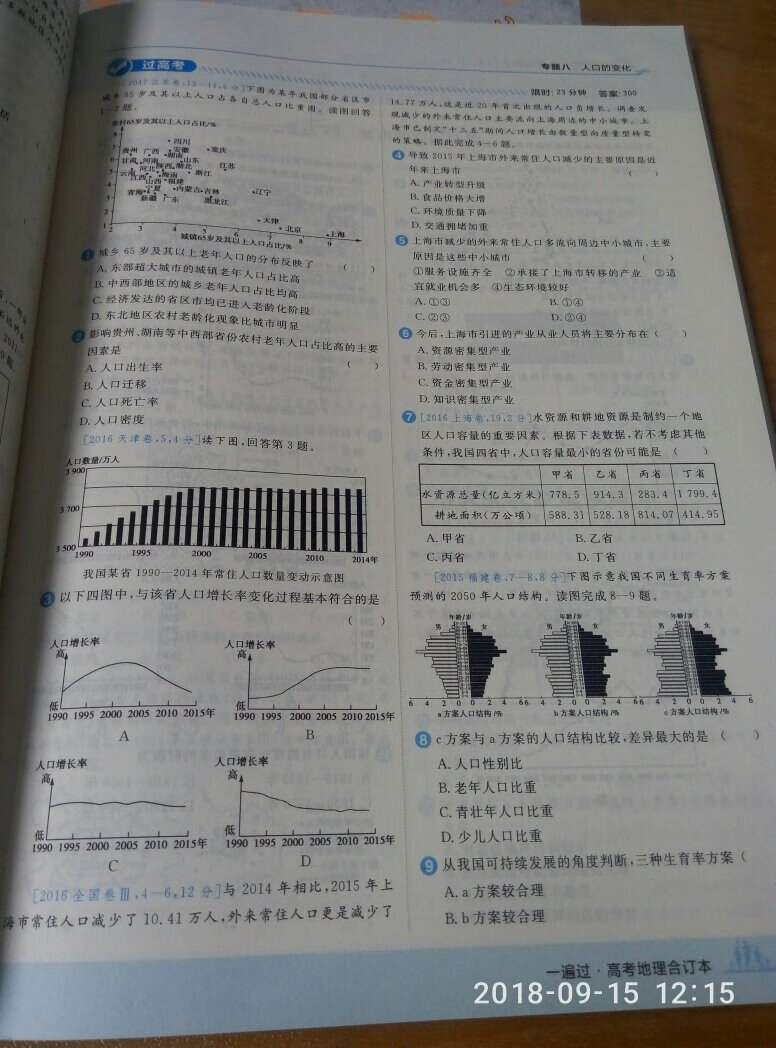 过高考
专题八 人口的变化
限时:23分钟 答案:300
[2017江苏卷,13—14,4分]下图为某年我国部分省区市
城乡65岁及其以上人口占各自总人口比重图。读图回答
1—2题。
农村65岁及其以上人口占比/%
四川
贵州 广西 安徽 重庆
湖南
甘肃 河南 山东
河北 陕西 湖北 江苏
云南 海南 浙江
江西
山西 福建
青海 宁夏 内蒙古 吉林 辽宁
新疆 广东 黑龙江
天津
北京
上海
2 3 4 5 6 7 8 9
城镇65岁及其以上人口占比/%
1 城乡65岁及其以上老年人口的分布反映了 ( )
A. 东部超大城市的城镇老年人口占比高
B. 中西部地区的城乡老年人口占比均高
C. 经济发达的省区市均已进入老龄化阶段
D. 东北地区农村老龄化现象比城市明显
2 影响贵州、湖南等中西部省份农村老年人口占比高的主要
因素是 ( )
A. 人口出生率
B. 人口迁移
C. 人口死亡率
D. 人口密度
[2016天津卷,5,4分]读下图,回答第3题。
人口数量/万人
3 900
3 700
3 500
1990 1995 2000 2005 2010 2014年
我国某省1990—2014年常住人口数量变动示意图
3 以下四图中,与该省人口增长率变化过程基本符合的是
( )
人口增长率
高
低
1990 1995 2000 2005 2010 2015年
A
人口增长率
高
低
1990 1995 2000 2005 2010 2015年
B
人口增长率
高
低
1990 1995 2000 2005 2010 2015年
C
人口增长率
高
低
1990 1995 2000 2005 2010 2015年
D
[2016全国卷Ⅲ,4—6,12分]与2014年相比,2015年上
海市常住人口减少了10.41万人,外来常住人口更是减少了
14.77万人,这是近20年首次出现的人口负增长。调查发
现减少的外来常住人口主要流向上海周边的中小城市。上
海市已制定“十三五”期间人口增长由数量型向质量型转变
的策略。据此完成4—6题。
4 导致2015年上海市外来常住人口减少的主要原因是近
年来上海市 ( )
A. 产业转型升级
B. 食品价格大增
C. 环境质量下降
D. 交通拥堵加重
5 上海市减少的外来常住人口多流向周边中小城市,主要
原因是这些中小城市 ( )
①服务设施齐全 ②承接了上海市转移的产业 ③适
宜就业机会多 ④生态环境较好
A. ①③ B. ①④
C. ②③ D. ②④
6 今后,上海市引进的产业从业人员将主要分布在 ( )
A. 资源密集型产业
B. 劳动密集型产业
C. 资金密集型产业
D. 知识密集型产业
7 [2016上海卷,19,2分]水资源和耕地资源是制约一个地
区人口容量的重要因素。根据下表数据,若不考虑其他
条件,我国四省中,人口容量最小的省份可能是 ( )
甲省 乙省 丙省 丁省
水资源总量(亿立方米) 778.5 914.3 283.4 1 799.4
耕地面积(万公顷) 588.31 528.18 814.07 414.95
A. 甲省 B. 乙省
C. 丙省 D. 丁省
[2015福建卷,7—8,8分]下图示意我国不同生育率方案
预测的2050年人口结构。读图完成8—9题。
年龄/岁 年龄/岁 年龄/岁
男 女 男 女 男 女
6 4 2 0 0 2 4 6 6 4 2 0 0 2 4 6 6 4 2 0 0 2 4 6
a方案人口结构/% b方案人口结构/% c方案人口结构/%
8 c方案与a方案的人口结构比较,差异最大的是 ( )
A. 人口性别比
B. 老年人口比重
C. 青壮年人口比重
D. 少儿人口比重
9 从我国可持续发展的角度判断,三种生育率方案 (
A. a方案较合理
B. b方案较合理
一遍过·高考地理合订本
2018-09-15 12:15